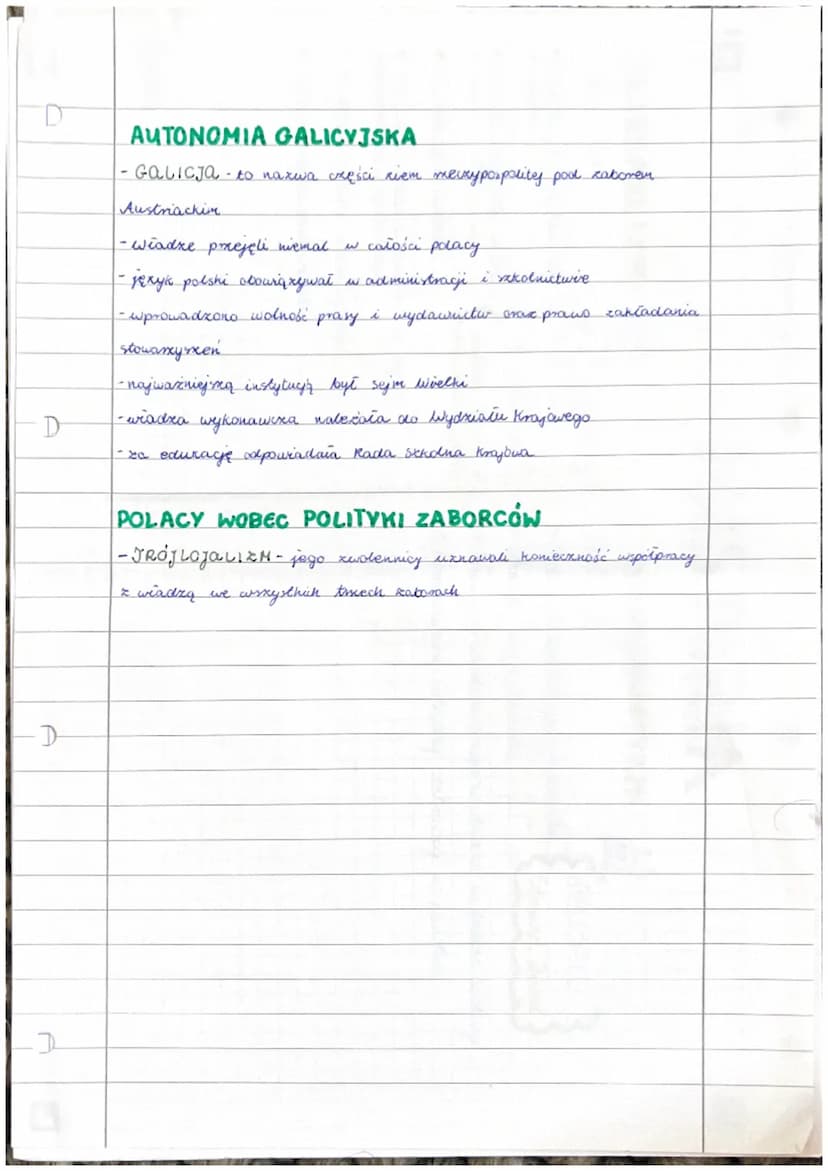 AUTONOMIA GALICYJSKA
- GALICJA - to nazwa części ziem rzeczypospolitej pod zaborem
Austriackim
- władze przejęli niemal w całości polacy
- język polski obowiązywał w administracji i szkolnictwie
- wprowadzono wolność prasy i wydawnictw oraz prawo zakładania
stowarzyszeń
- najważniejszą instytucją był sejm
- władza wykonawcza należała do Wydziału Krajowego
- za edukację odpowiadała Rada Szkolna
POLACY WOBEC POLITYKI ZABORCÓW
- TRÓJLOJALIZM - jego zwolennicy uznawali konieczność współpracy
z władzą we wszystkich trzech zaborach